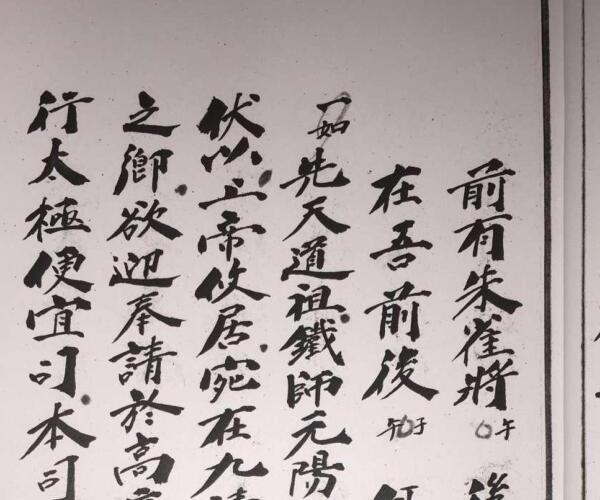 前有朱雀將午
在吾前後
一如先天道祖鐵師元陽
伏以上帝攸居宛在九清
之鄉欲迎奉請於高
行太極便宜司本司